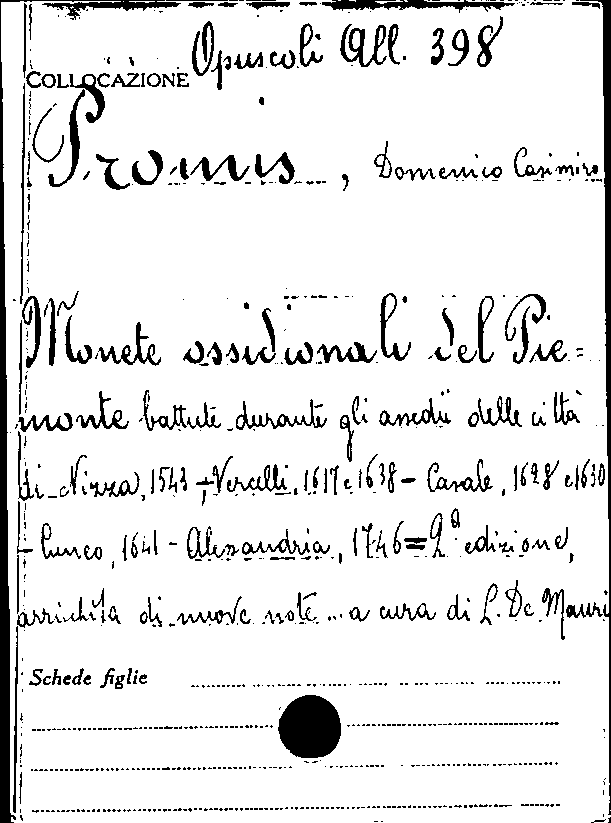 Opuscoli All. 398
COLLOCAZIONE
Promis, Domenico Casimiro
Monete ossidionali del Pie=
monte battute durante gli assedii delle città
di Nizza, 1543 - Vercelli, 1617 e 1638 - Casale, 1628 e 1630
- Cuneo, 1641 - Alessandria, 1746 = 2ª edizione,
arrichita di nuove note ... a cura di L. De Mauri
Schede figlie